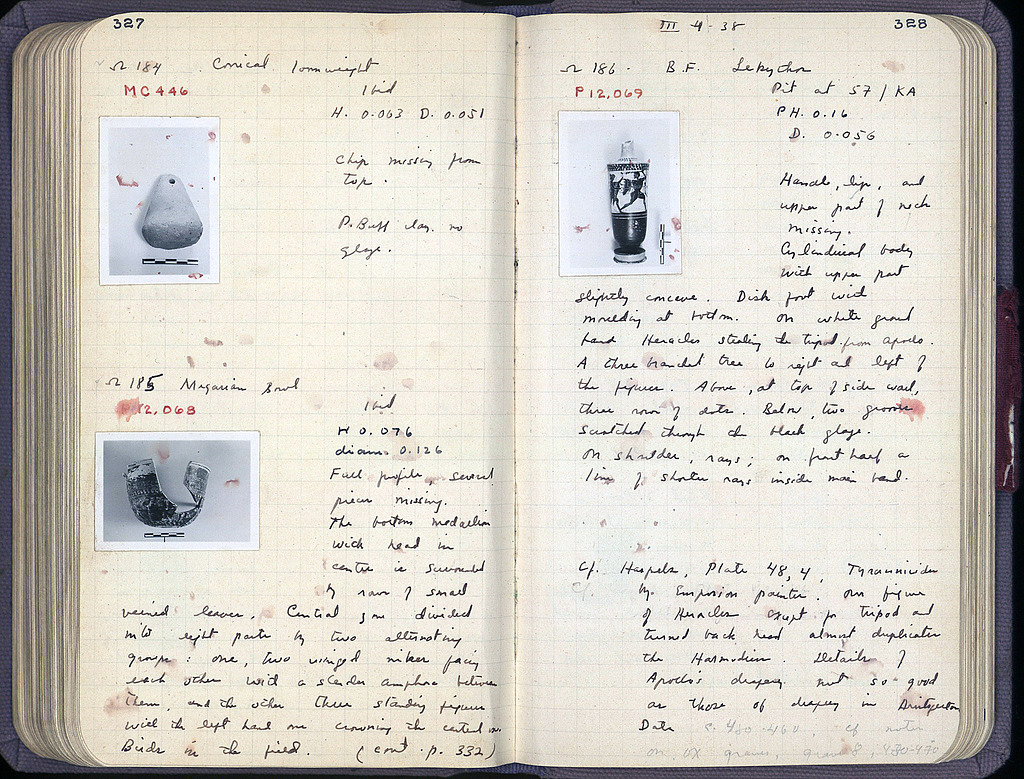 327
Ω 184 Conical loomweight
MC 446
Ibid
H. 0.063 D. 0.051
Chip missing from
top.
P. Buff clay. no
glaze.
Ω 185 Megarian Bowl
P 12,068
Ibid
H 0.076
diam. 0.126
Full profile, several
pieces missing.
The bottom medallion
with head in
centre is surrounded
by row of small
veined leaves. Central zone divided
into eight parts by two alternating
groups: one, two winged nikes facing
each other with a slender amphora between
them, and the other three standing figures
with the left hand one crowning the central one.
Birds in the field. (cont. p. 332)
III 4-38
328
Ω 186. B.F. Lekythos
P 12,069
Pit at 57/KA
PH. 0.16
D. 0.056
Handle, lip, and
upper part of neck
missing.
Cylindrical body
with upper part
slightly concave. Disk foot with
moulding at bottom. On white ground
band Heracles stealing the tripod from Apollo.
A three branched tree to right and left of
the figures. Above, at top of side wall,
three rows of dots. Below, two grooves
scratched through the black glaze.
On shoulder, rays; on front half a
line of shorter rays inside main band.
Cf. Haspels, Plate 48,4, Tyrannicides
by Emporion painter. Our figure
of Heracles except for tripod and
turned back head almost duplicates
the Harmodios. Details of
Apollo's drapery not so good
as those of drapery in Aristogeiton
Date c. 480-460, cf notes
on UX graves, grave 8, 480-470